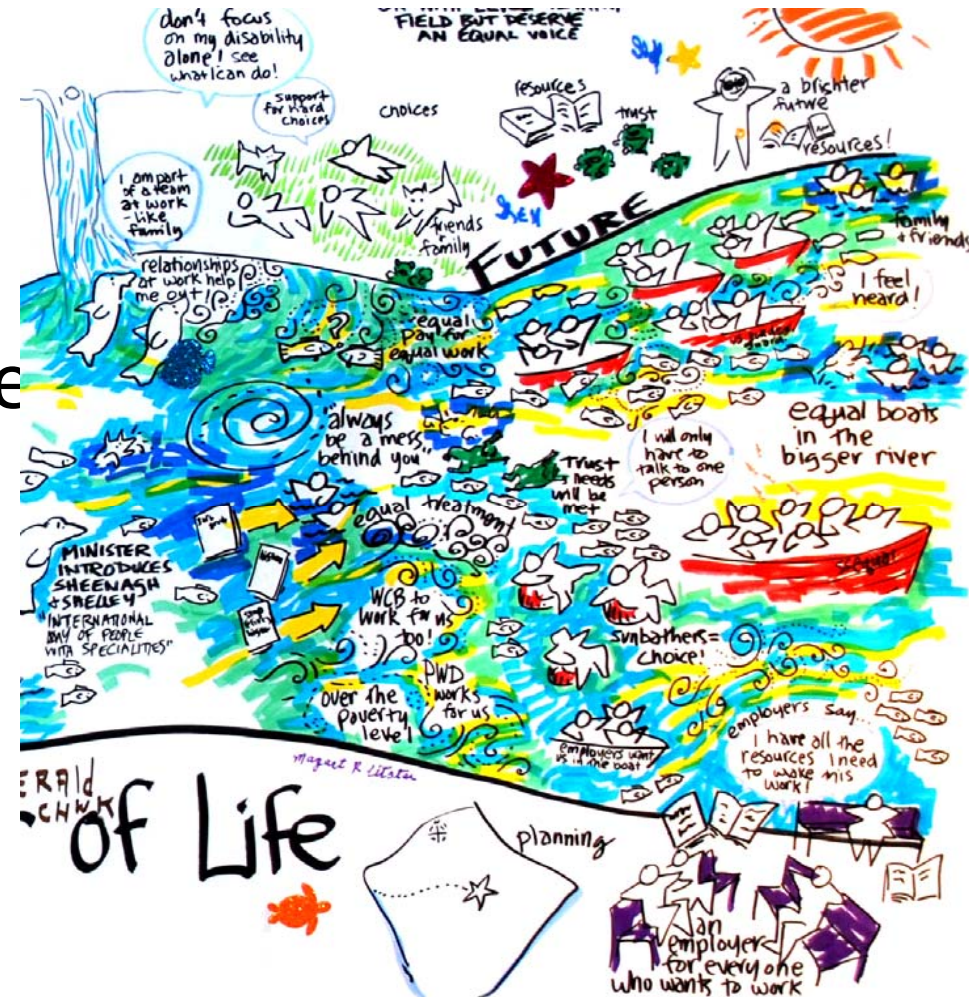 don't focus
on my disability
alone! see
what I can do!
FIELD BUT DESERVE
AN EQUAL VOICE
support
for hard
choices
choices
resources
trust
a brighter
future
resources!
I am part
of a team
at work
- like
family
friends
+
family
FUTURE
family
+ friends
relationships
at work help
me out!
?
equal
pay for
equal work
I feel
heard!
e
"always
be a mess
behind you"
equal boats
in the
bigger river
I will only
have to
talk to one
person
Trust
needs
will be
met
equal treatment
MINISTER
INTRODUCES
SHEENAGH
+ SHELLEY
"INTERNATIONAL
DAY OF PEOPLE
WITH SPECIALITIES"
WCB to
work for us
too!
sunbathers=
choice!
over the
poverty
level
PWD
works
for us
employers want
us in the boat
employers say...
I have all the
resources I need
to make this
work!
of Life
planning
an
employer
for every one
who wants to work